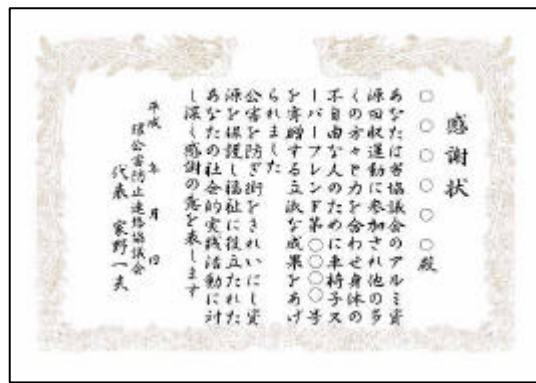 感謝状
○○○○○○殿
あなたは当協議会のアルミ資
源回収運動に参加され他の多
くの方々と力を合わせ身体の
不自由な人のために車椅子ス
ーパーフレンド第○○○○号
を寄贈する立派な成果をあげ
られました
公害を防ぎ街をきれいにし資
源を保護し福祉に役立たれた
あなたの社会的実践活動に対
し深く感謝の意を表します
平成 年 月 日
環公害防止連絡協議会
代表 家野一夫